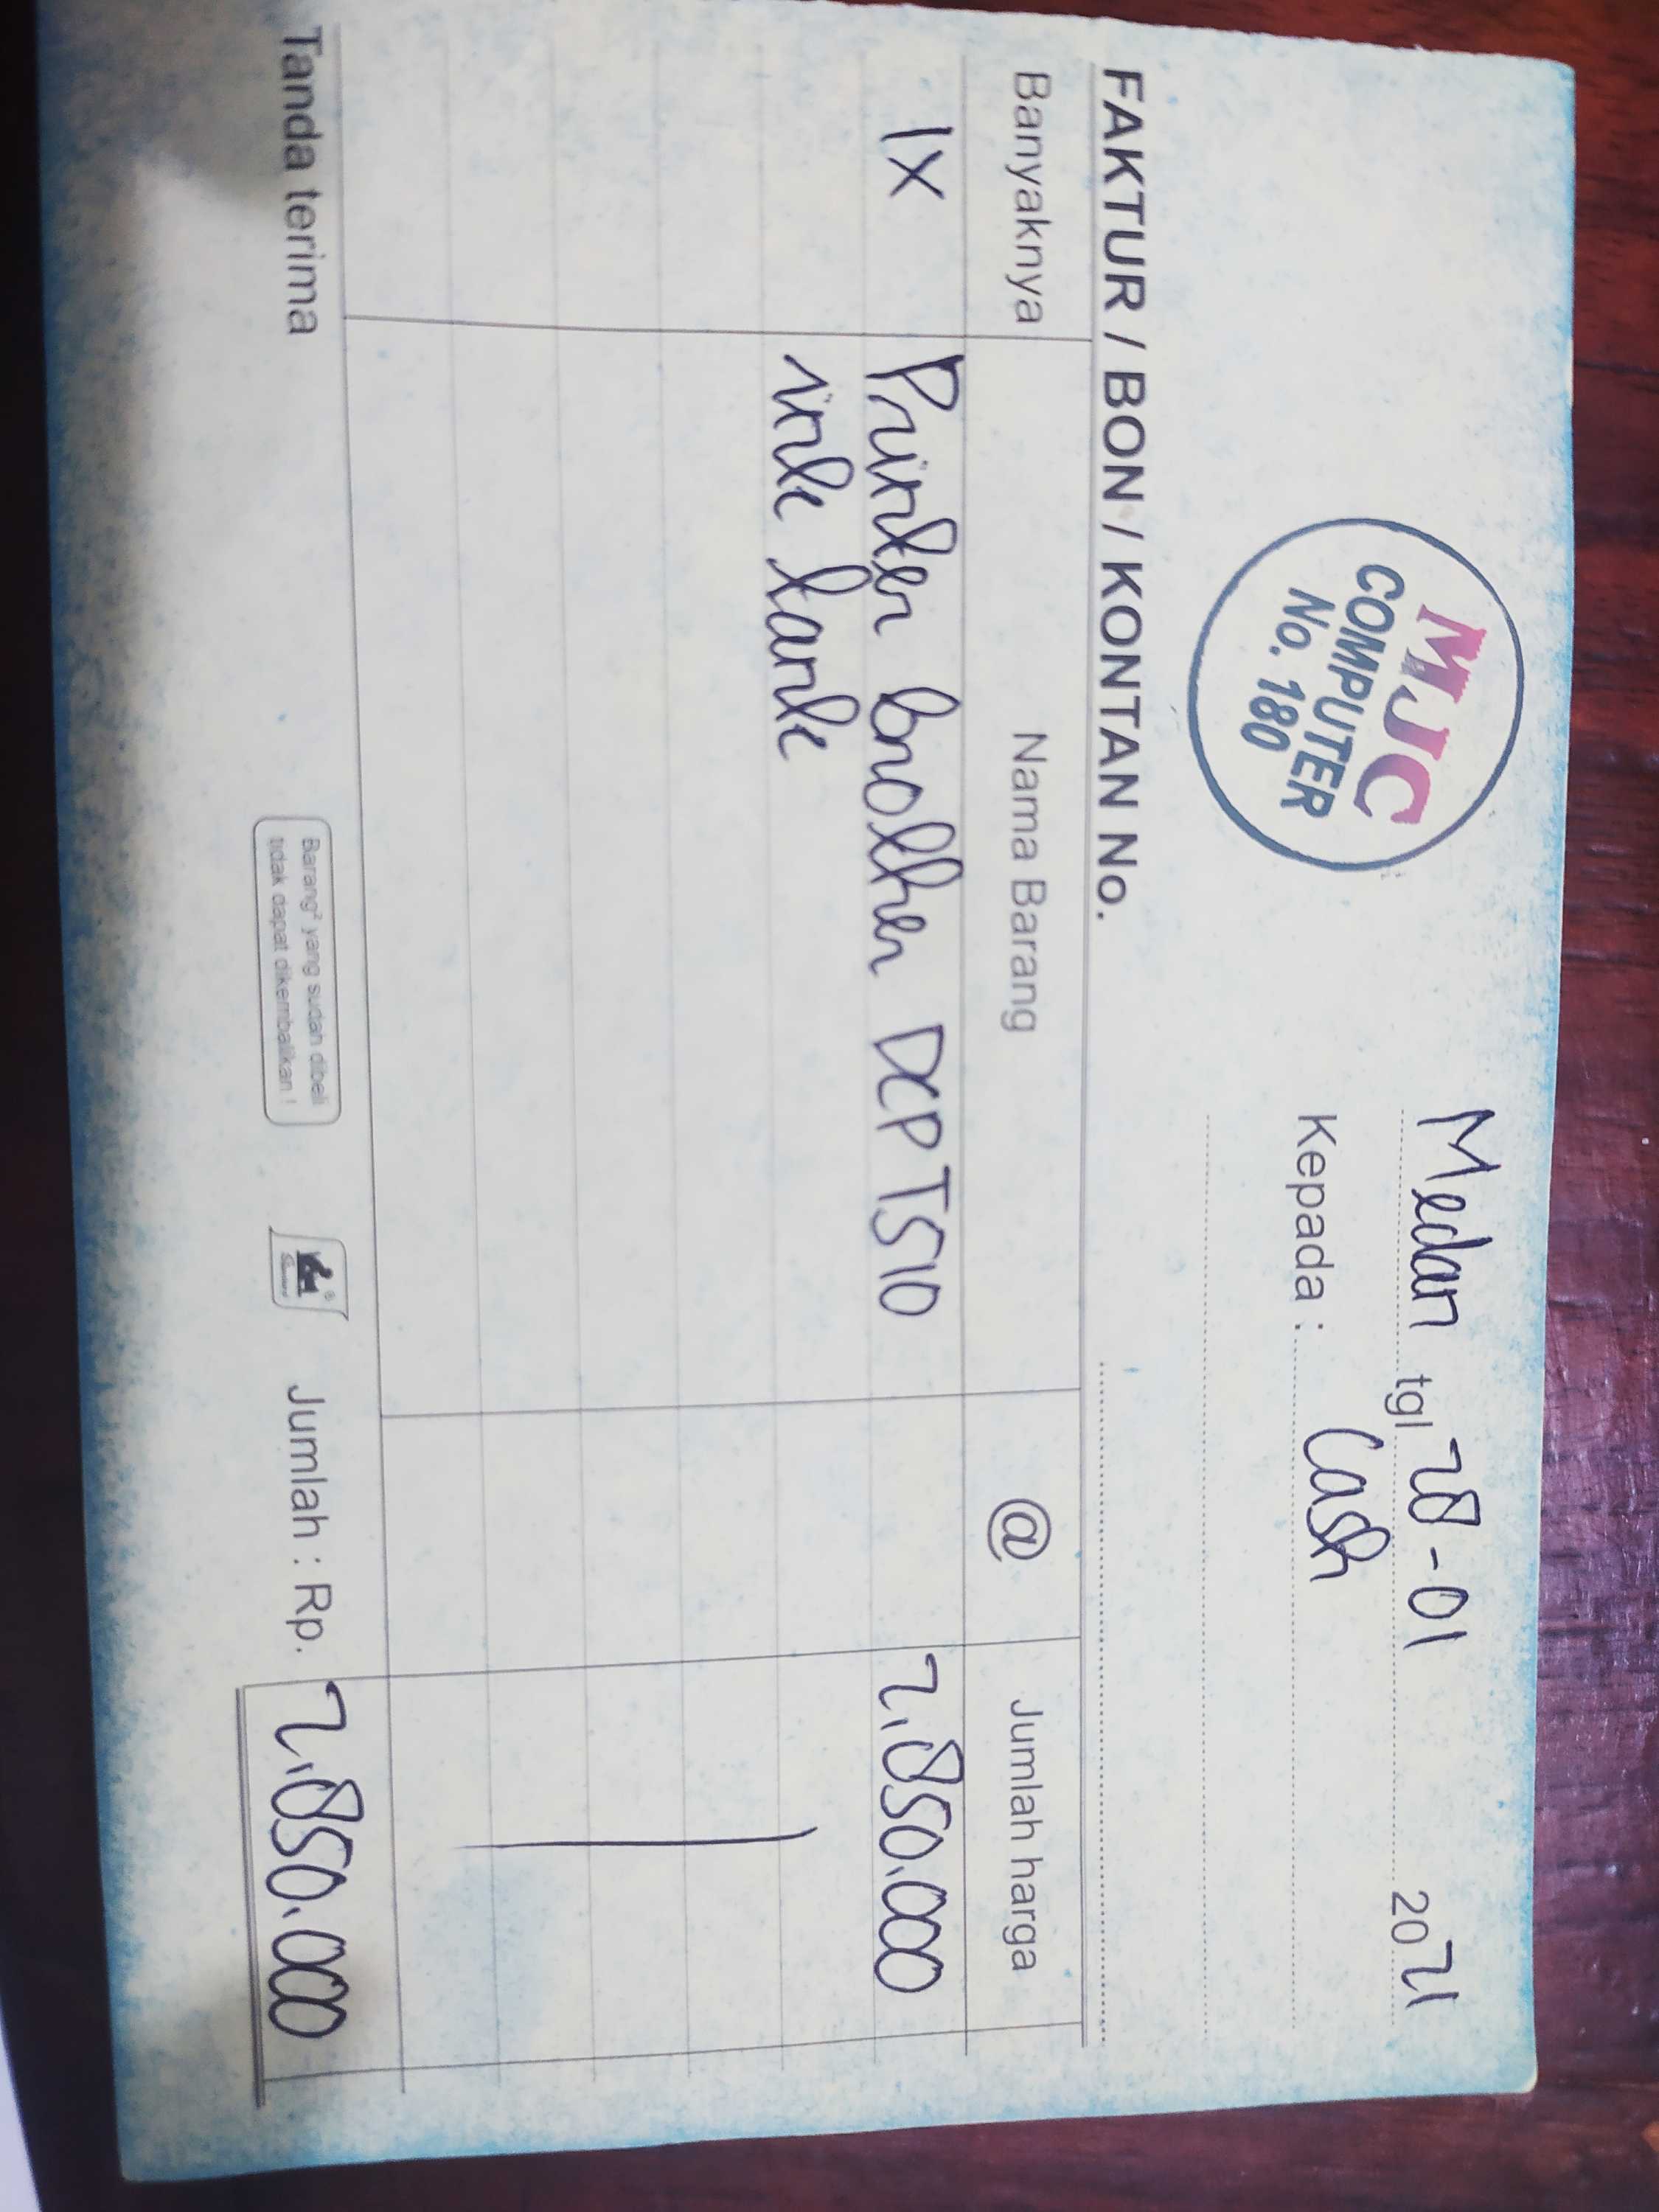 MJC
COMPUTER
No. 180
Medan tgl 28-01 2021
Kepada : Cash
FAKTUR / BON / KONTAN No.
Banyaknya Nama Barang @ Jumlah harga
1X Printer brother DCP T510 2.850.000
ink tank
Tanda terima
Barang² yang sudah dibeli
tidak dapat dikembalikan !
Jumlah : Rp. 2.850.000